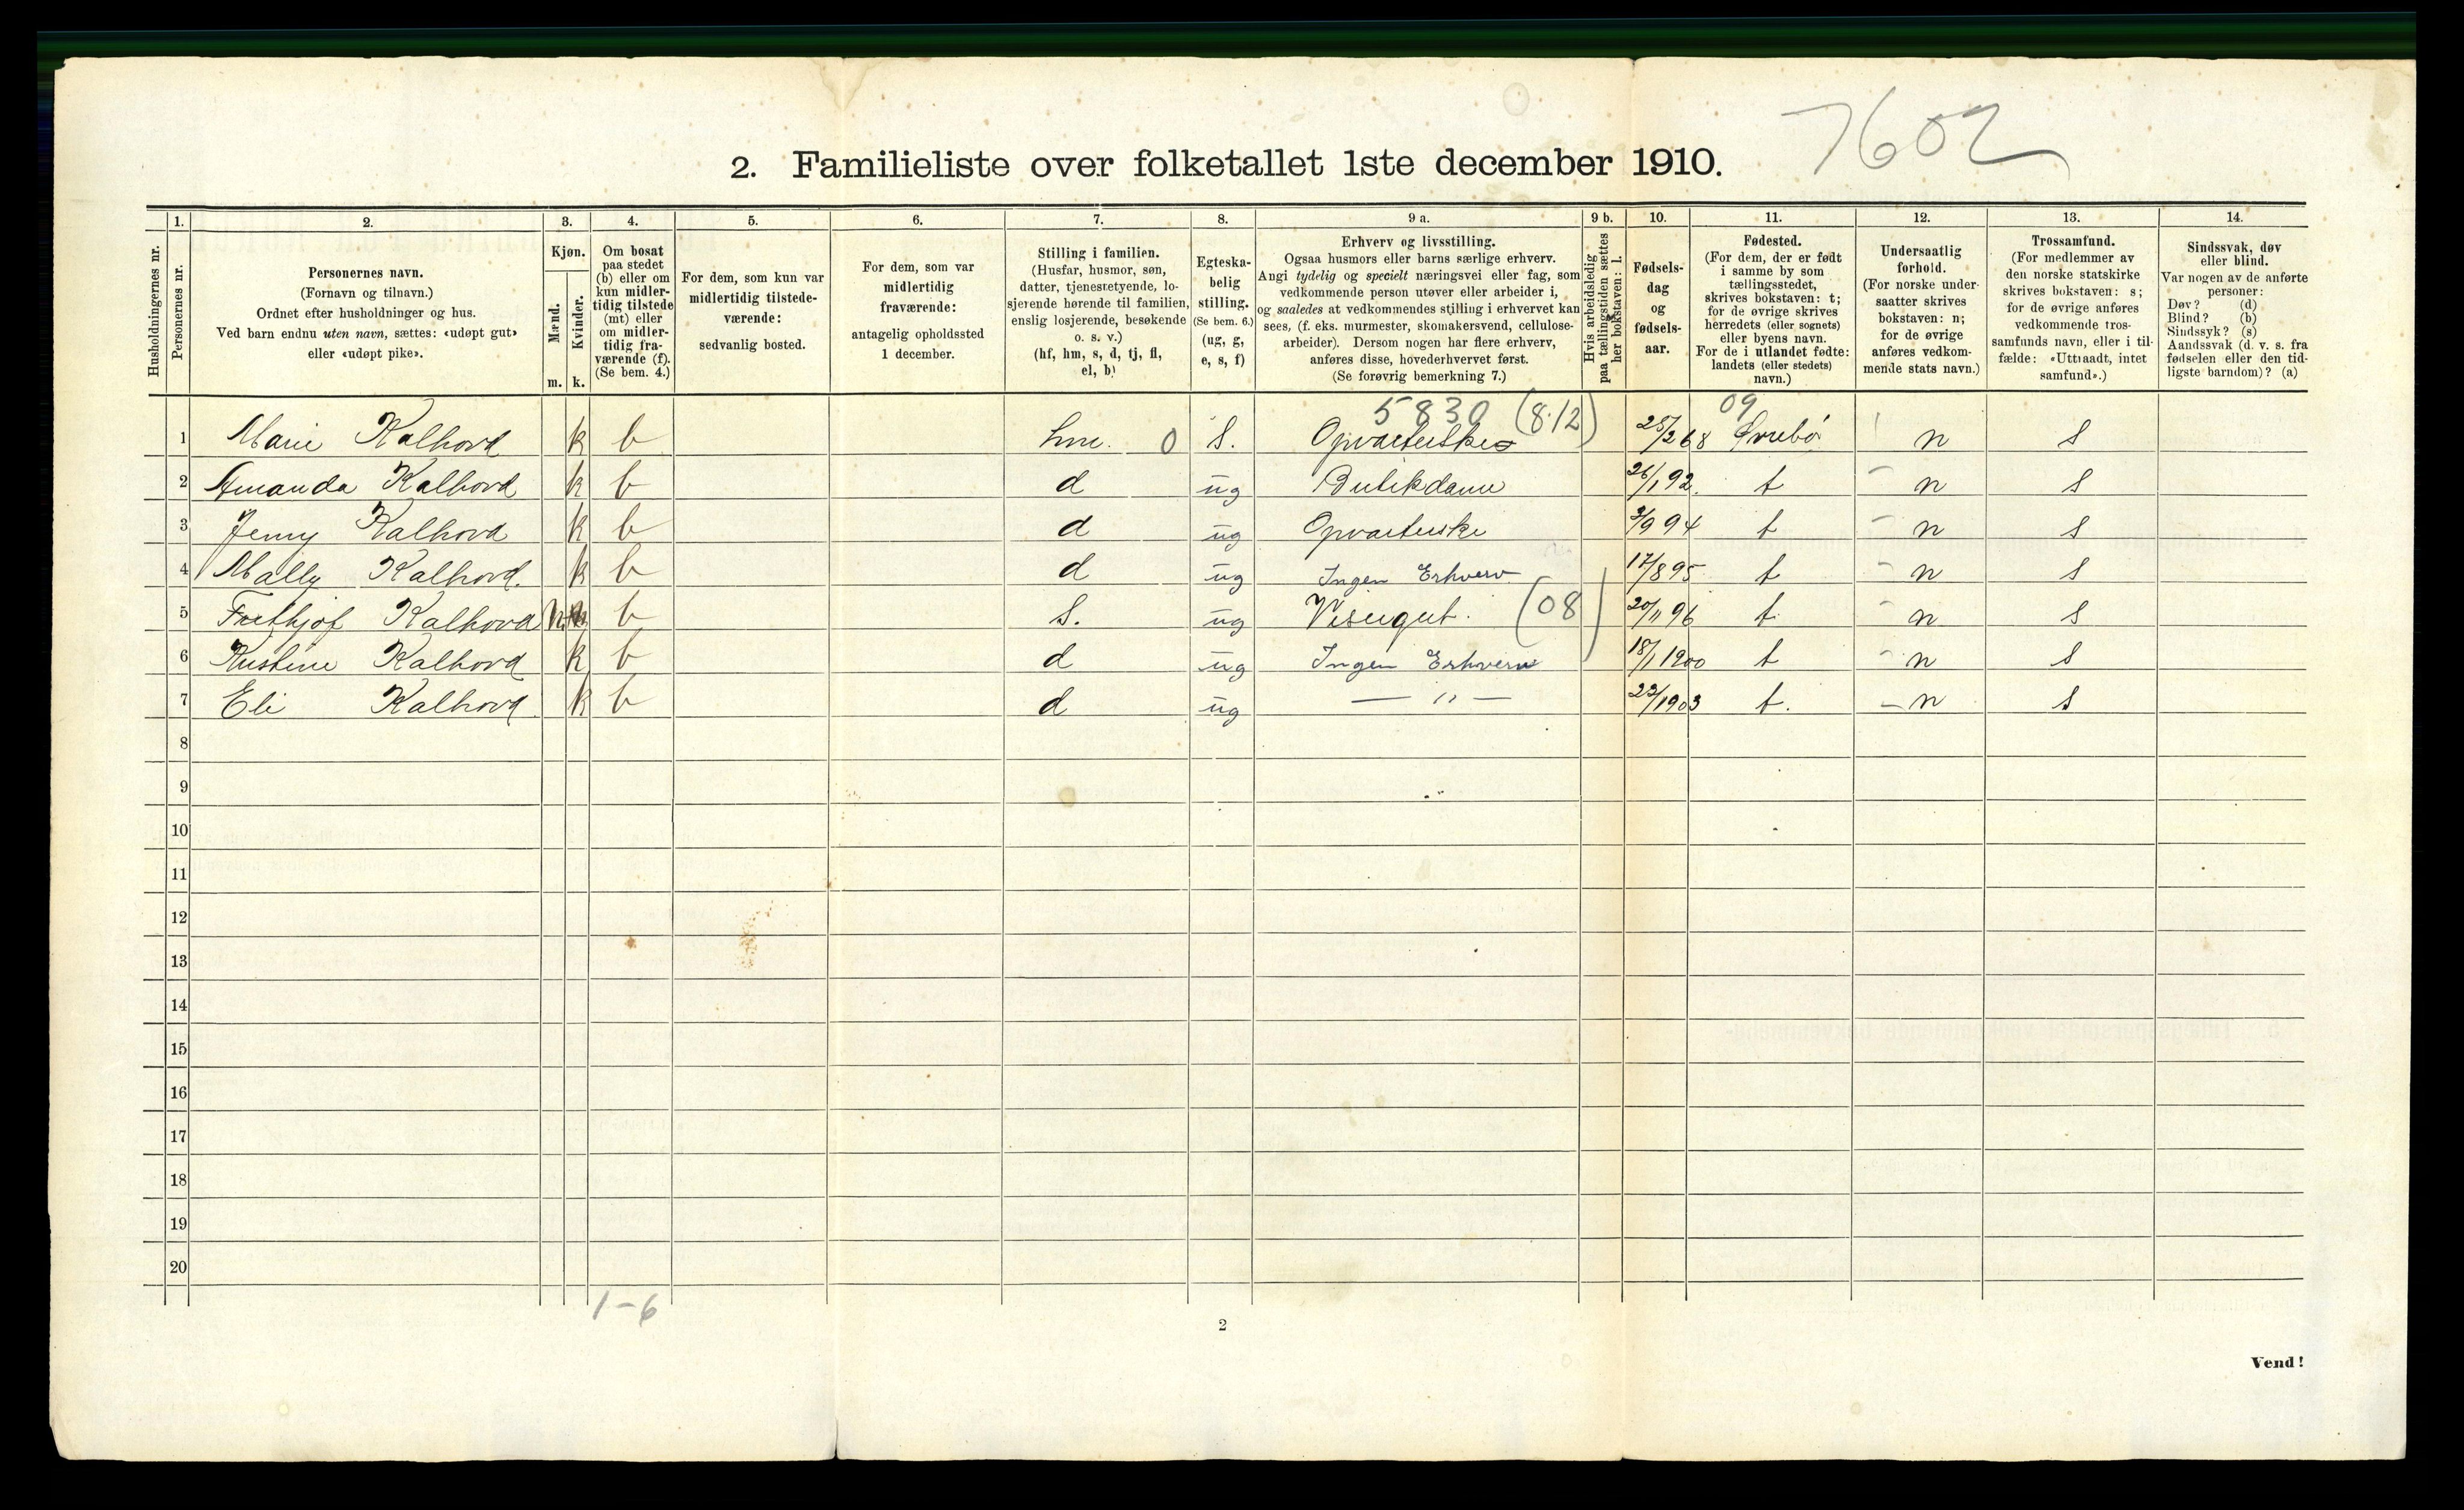 7602
2. Familieliste over folketallet 1ste december 1910.
Husholdningernes nr.
1. Personernes nr.
2. Personernes navn.
(Fornavn og tilnavn.)
Ordnet efter husholdninger og hus.
Ved barn endnu uten navn, sættes: «udøpt gut»
eller «udøpt pike».
3. Kjøn.
Mænd. Kvinder.
m. k.
4. Om bosat
paa stedet
(b) eller om
kun midler-
tidig tilstede
(mt) eller
om midler-
tidig fra-
værende (f).
(Se bem. 4.)
5. For dem, som kun var
midlertidig tilstede-
værende:
sedvanlig bosted.
6. For dem, som var
midlertidig
fraværende:
antagelig opholdssted
1 december.
7. Stilling i familien.
(Husfar, husmor, søn,
datter, tjenestetyende, lo-
sjerende hørende til familien,
enslig losjerende, besøkende
o. s. v.)
(hf, hm, s, d, tj, fl,
el, b)
8. Egteska-
belig
stilling.
(Se bem. 6.)
(ug, g,
e, s, f)
9 a. Erhverv og livsstilling.
Ogsaa husmors eller barns særlige erhverv.
Angi tydelig og specielt næringsvei eller fag, som
vedkommende person utøver eller arbeider i,
og saaledes at vedkommendes stilling i erhvervet kan
sees, (f. eks. murmester, skomakersvend, cellulose-
arbeider). Dersom nogen har flere erhverv,
anføres disse, hovederhvervet først.
(Se forøvrig bemerkning 7.)
9 b. Hvis arbeidsledig
paa tællingstiden sættes
her bokstaven: l.
10. Fødsels-
dag
og
fødsels-
aar.
11. Fødested.
(For dem, der er født
i samme by som
tællingsstedet,
skrives bokstaven: t;
for de øvrige skrives
herredets (eller sognets)
eller byens navn.
For de i utlandet fødte:
landets (eller stedets)
navn.)
12. Undersaatlig
forhold.
(For norske under-
saatter skrives
bokstaven: n;
for de øvrige
anføres vedkom-
mende stats navn.)
13. Trossamfund.
(For medlemmer av
den norske statskirke
skrives bokstaven: s;
for de øvrige anføres
vedkommende tros-
samfunds navn, eller i til-
fælde: «Uttraadt, intet
samfund».)
14. Sindssvak, døv
eller blind.
Var nogen av de anførte
personer:
Døv? (d)
Blind? (b)
Sindssyk? (s)
Aandssvak (d. v. s. fra
fødselen eller den tid-
ligste barndom)? (a)
5830 (8·12) 09
1 Marie Kalhovd k b hm. 0 S. Opvarterske 25/2 68 Øvrebø n s
2 Amanda Kalhovd k b d ug Butikdame 26/1 92. t n s
3 Jenny Kalhovd k b d ug Opvarterske 3/9 94 t n s
4 Mally Kalhovd. k b d ug Ingen Erhverv 17/8 95 t n s
5 Frithjof Kalhovd m b s. ug Visergut. (08) 20/11 96 t. n s
6 Kristine Kalhovd k b d ug Ingen Erhverv 18/1 1900 t n s
7 Eli Kalhovd k b d ug — " — 1903 t. n s
8
9
10
11
12
13
14
15
16
17
18
19
20
1-6
2
Vend!